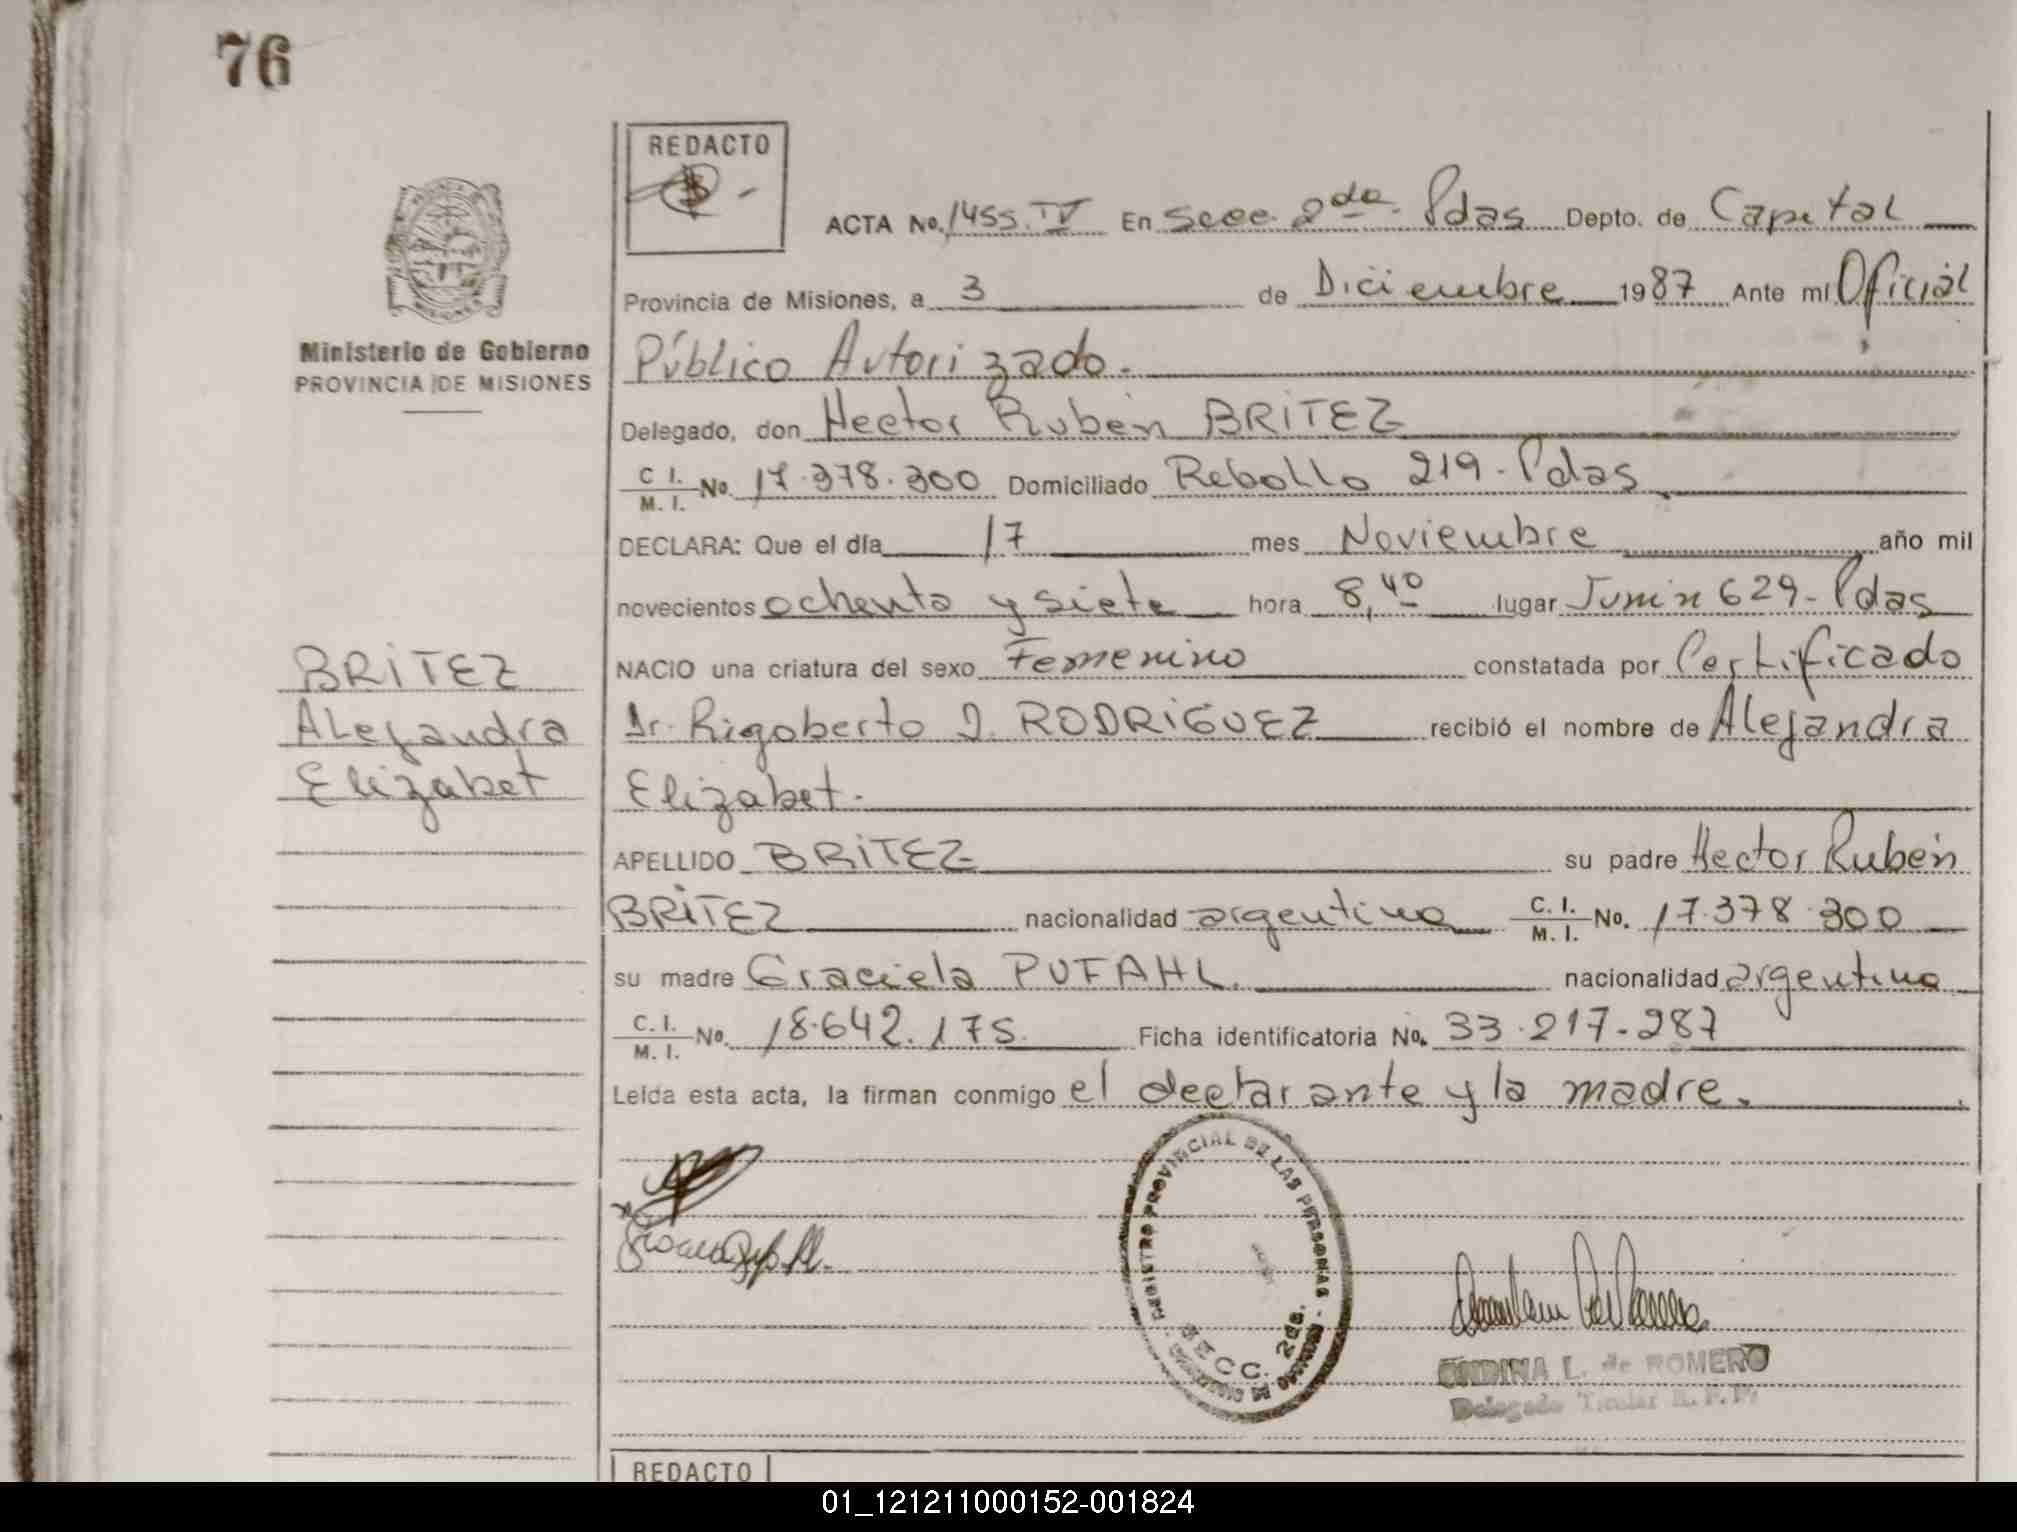 76
REDACTO
ACTA No. 1455.IV En Secc. 2da. Pdas Depto. de Capital
Provincia de Misiones, a 3 de Diciembre 1987 Ante mí Oficial
Ministerio de Gobierno
PROVINCIA DE MISIONES
Público Autorizado.
Delegado, don Hector Rubén BRITEZ
C. I. M. I. No. 17.378.300 Domiciliado Rebollo 219 - Pdas
DECLARA: Que el día 17 mes Noviembre año mil
novecientos ochenta y siete hora 8,40 lugar Junin 629 - Pdas
NACIO una criatura del sexo Femenino constatada por Certificado
BRITEZ
Alejandra
Elizabet
Dr. Rigoberto J. RODRIGUEZ recibió el nombre de Alejandra
Elizabet.
APELLIDO BRITEZ su padre Hector Rubén
BRITEZ nacionalidad argentina C. I. M. I. No. 17.378.300
su madre Graciela PUFAHL. nacionalidad argentina
C. I. M. I. No. 18.642.175. Ficha identificatoria No. 33.217.287
Leída esta acta, la firman conmigo el declarante y la madre.
REGISTRO PROVINCIAL DE LAS PERSONAS
SECC. 2da.
ONDINA L. de ROMERO
Delegado Titular R. P. P.
REDACTO
01_121211000152-001824